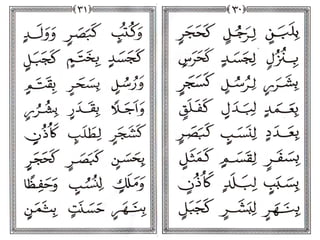 ٣٠
بِلَبَنٍ لِرَجُلٍ كَحَجَرٍ
بِنُزُلٍ لِجَسَدٍ كَحَرَسٍ
بِشَرَرٍ لِرُسُلٍ كَسَحَرٍ
بِعَمَدٍ لِبَدَلٍ كَفَلَقٍ
بِعَدَدٍ لِنَسَبٍ كَبَصَرٍ
بِسَفَرٍ لِقَسَمٍ كَمَثَلٍ
بِسَبَبٍ لِبَلَدٍ كَأُذُنٍ
بِنَهَرٍ لِبَشَرٍ كَجَبَلٍ
٣١
وَكُتُبٍ كَبَصَرٍ وَوَلَدٍ
كَجَسَدٍ بِخَتَمٍ كَجَبَلٍ
وَرُسُلٍ بِسَحَرٍ بِقَتَمٍ
وَأَجَلًا بِقَدَرٍ
كَشَجَرٍ لِطَلَبٍ كَأُذُنٍ
بِحَسَنٍ كَبَصَرٍ كَحَجَرٍ
وَمَلَكٍ لِنُسُبٍ وَحَفِظًا
بِنَهَرٍ حَسَنَتٍ بِثَمَنٍ